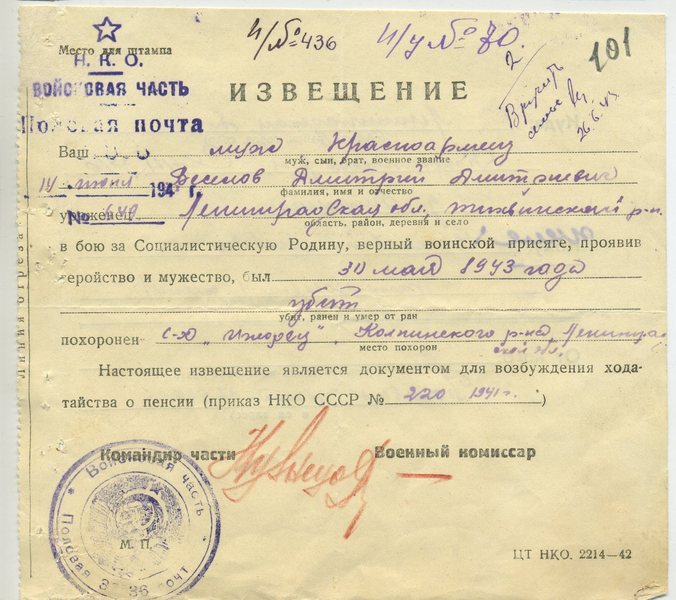 И/№436 И/у №70.
2
101
Место для штампа
Н. К. О.
ВОЙСКОВАЯ ЧАСТЬ
Полевая почта
ИЗВЕЩЕНИЕ
Вручить
26.6.43
Ваш муж Красноармеец
муж, сын, брат, военное звание
14 июня 194 г. Веселов Дмитрий Дмитриевич
фамилия, имя и отчество
№ 649
уроженец Ленинградская обл., Тихвинский р-н
область, район, деревня и село
в бою за Социалистическую Родину, верный воинской присяге, проявив
геройство и мужество, был 30 мая 1943 года
убит
убит, ранен и умер от ран
похоронен с-з „Ижорец", Колпинского р-на, Ленинград
место похорон
ской обл.
Настоящее извещение является документом для возбуждения хода-
тайства о пенсии (приказ НКО СССР № 220 1941г. )
Командир части Военный комиссар
Кузнецов
Войсковая часть
Полевая почт
М. П.
ЦТ НКО. 2214—42
Линия отреза